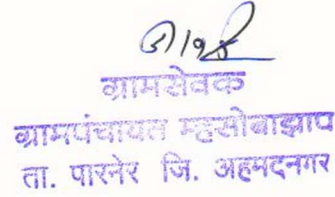 ग्रामसेवक
ग्रामपंचायत म्हसोबाझाप
ता. पारनेर जि. अहमदनगर